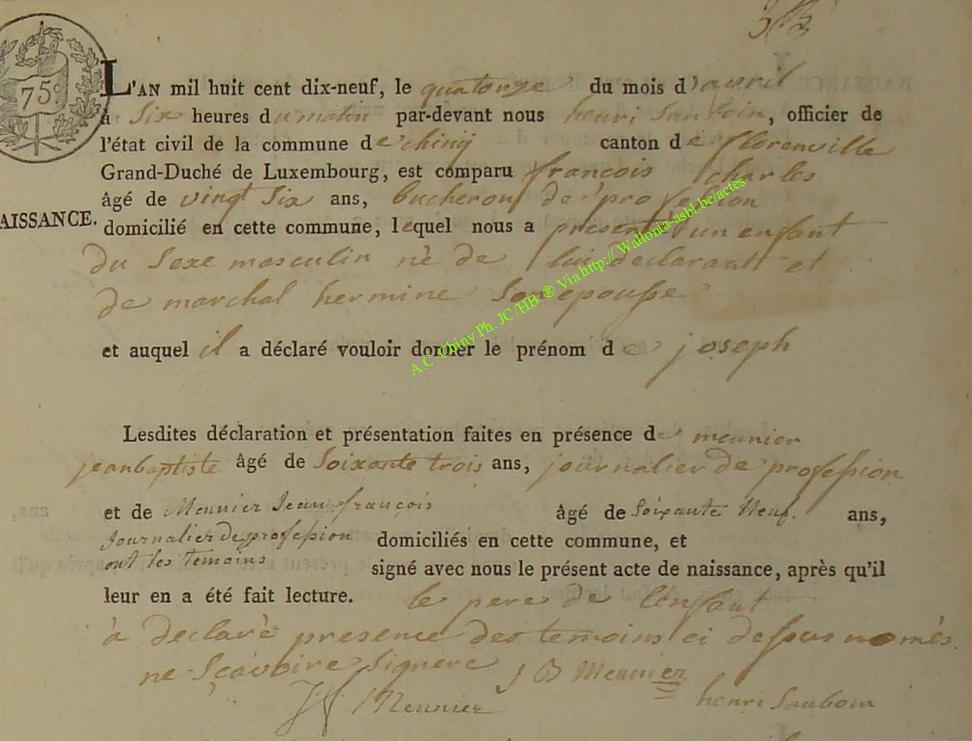 75c
L'AN mil huit cent dix-neuf, le quatorze du mois d'avril
à six heures du matin par-devant nous henri Sauboin, officier de
l'état civil de la commune de chiny canton de florenville
Grand-Duché de Luxembourg, est comparu françois charles
âgé de vingt six ans, bucheron de profession
AISSANCE. domicilié en cette commune, lequel nous a presenté un enfant
du Sexe masculin nè de lui declarant et
de marchal hermine Son epousse
et auquel il a déclaré vouloir donner le prénom de joseph
Lesdites déclaration et présentation faites en présence de meunier
jeanbaptiste âgé de Soixante trois ans, journalier de profession
et de Meunier Jean françois âgé de Soixante Neuf. ans,
Journalier de profession domiciliés en cette commune, et
ont les temoins signé avec nous le présent acte de naissance, après qu'il
leur en a été fait lecture. le pere de l'enfant
à declarè presence des temoins ci dessus només
ne Sçavoire Signere J B Meunier
Meunier henri Sauboin
A.C. Chiny Ph. JC /HB ® Via http:// Wallonia-asbl.be/actes